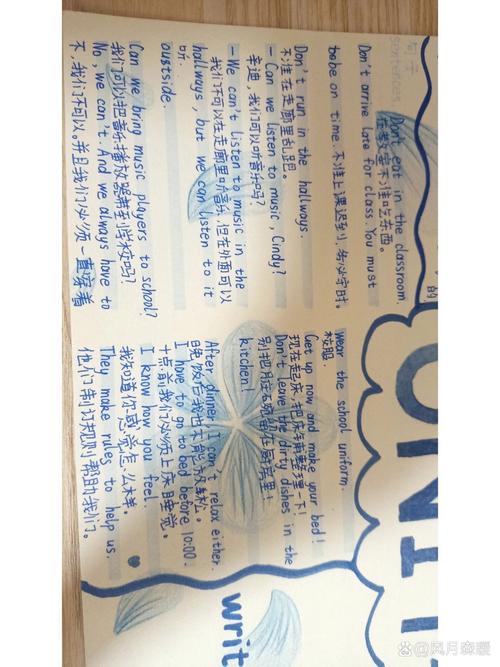 句子
sentences
Dont eat in the classroom.
在教室不准吃东西。
Don't arrive late for class. You must
be on time. 不准上课迟到,务必守时。
Don't run in the hallways.
不准在走廊里乱跑。
- Can we listen to music, Cindy?
辛迪,我们可以听音乐吗?
- We can't listen to music in the
我们不可以在走廊里听音乐,但在外面可以
hallways, but we can listen to it
听。
outside.
Can we bring music players to school?
我们可以把音乐播放器带到学校吗?
No, we can't. And we always have to
不,我们不可以。并且我们必须一直穿着
wear the school uniform.
校服.
Get up now and make your bed!
现在起床,把床铺整理一下!
Don't leave the dirty dishes in the
别把脏碗留在厨房里!
kitchen!
After dinner, I can't relax either.
晚饭后我也不能放松。
I have to go to bed before 10:00.
十点前我必须上床睡觉。
I know how you feel.
我知道你感觉怎么样
They make rules to help us.
他们制订规则帮助我们。
的
UNI
writ
@风月森暖